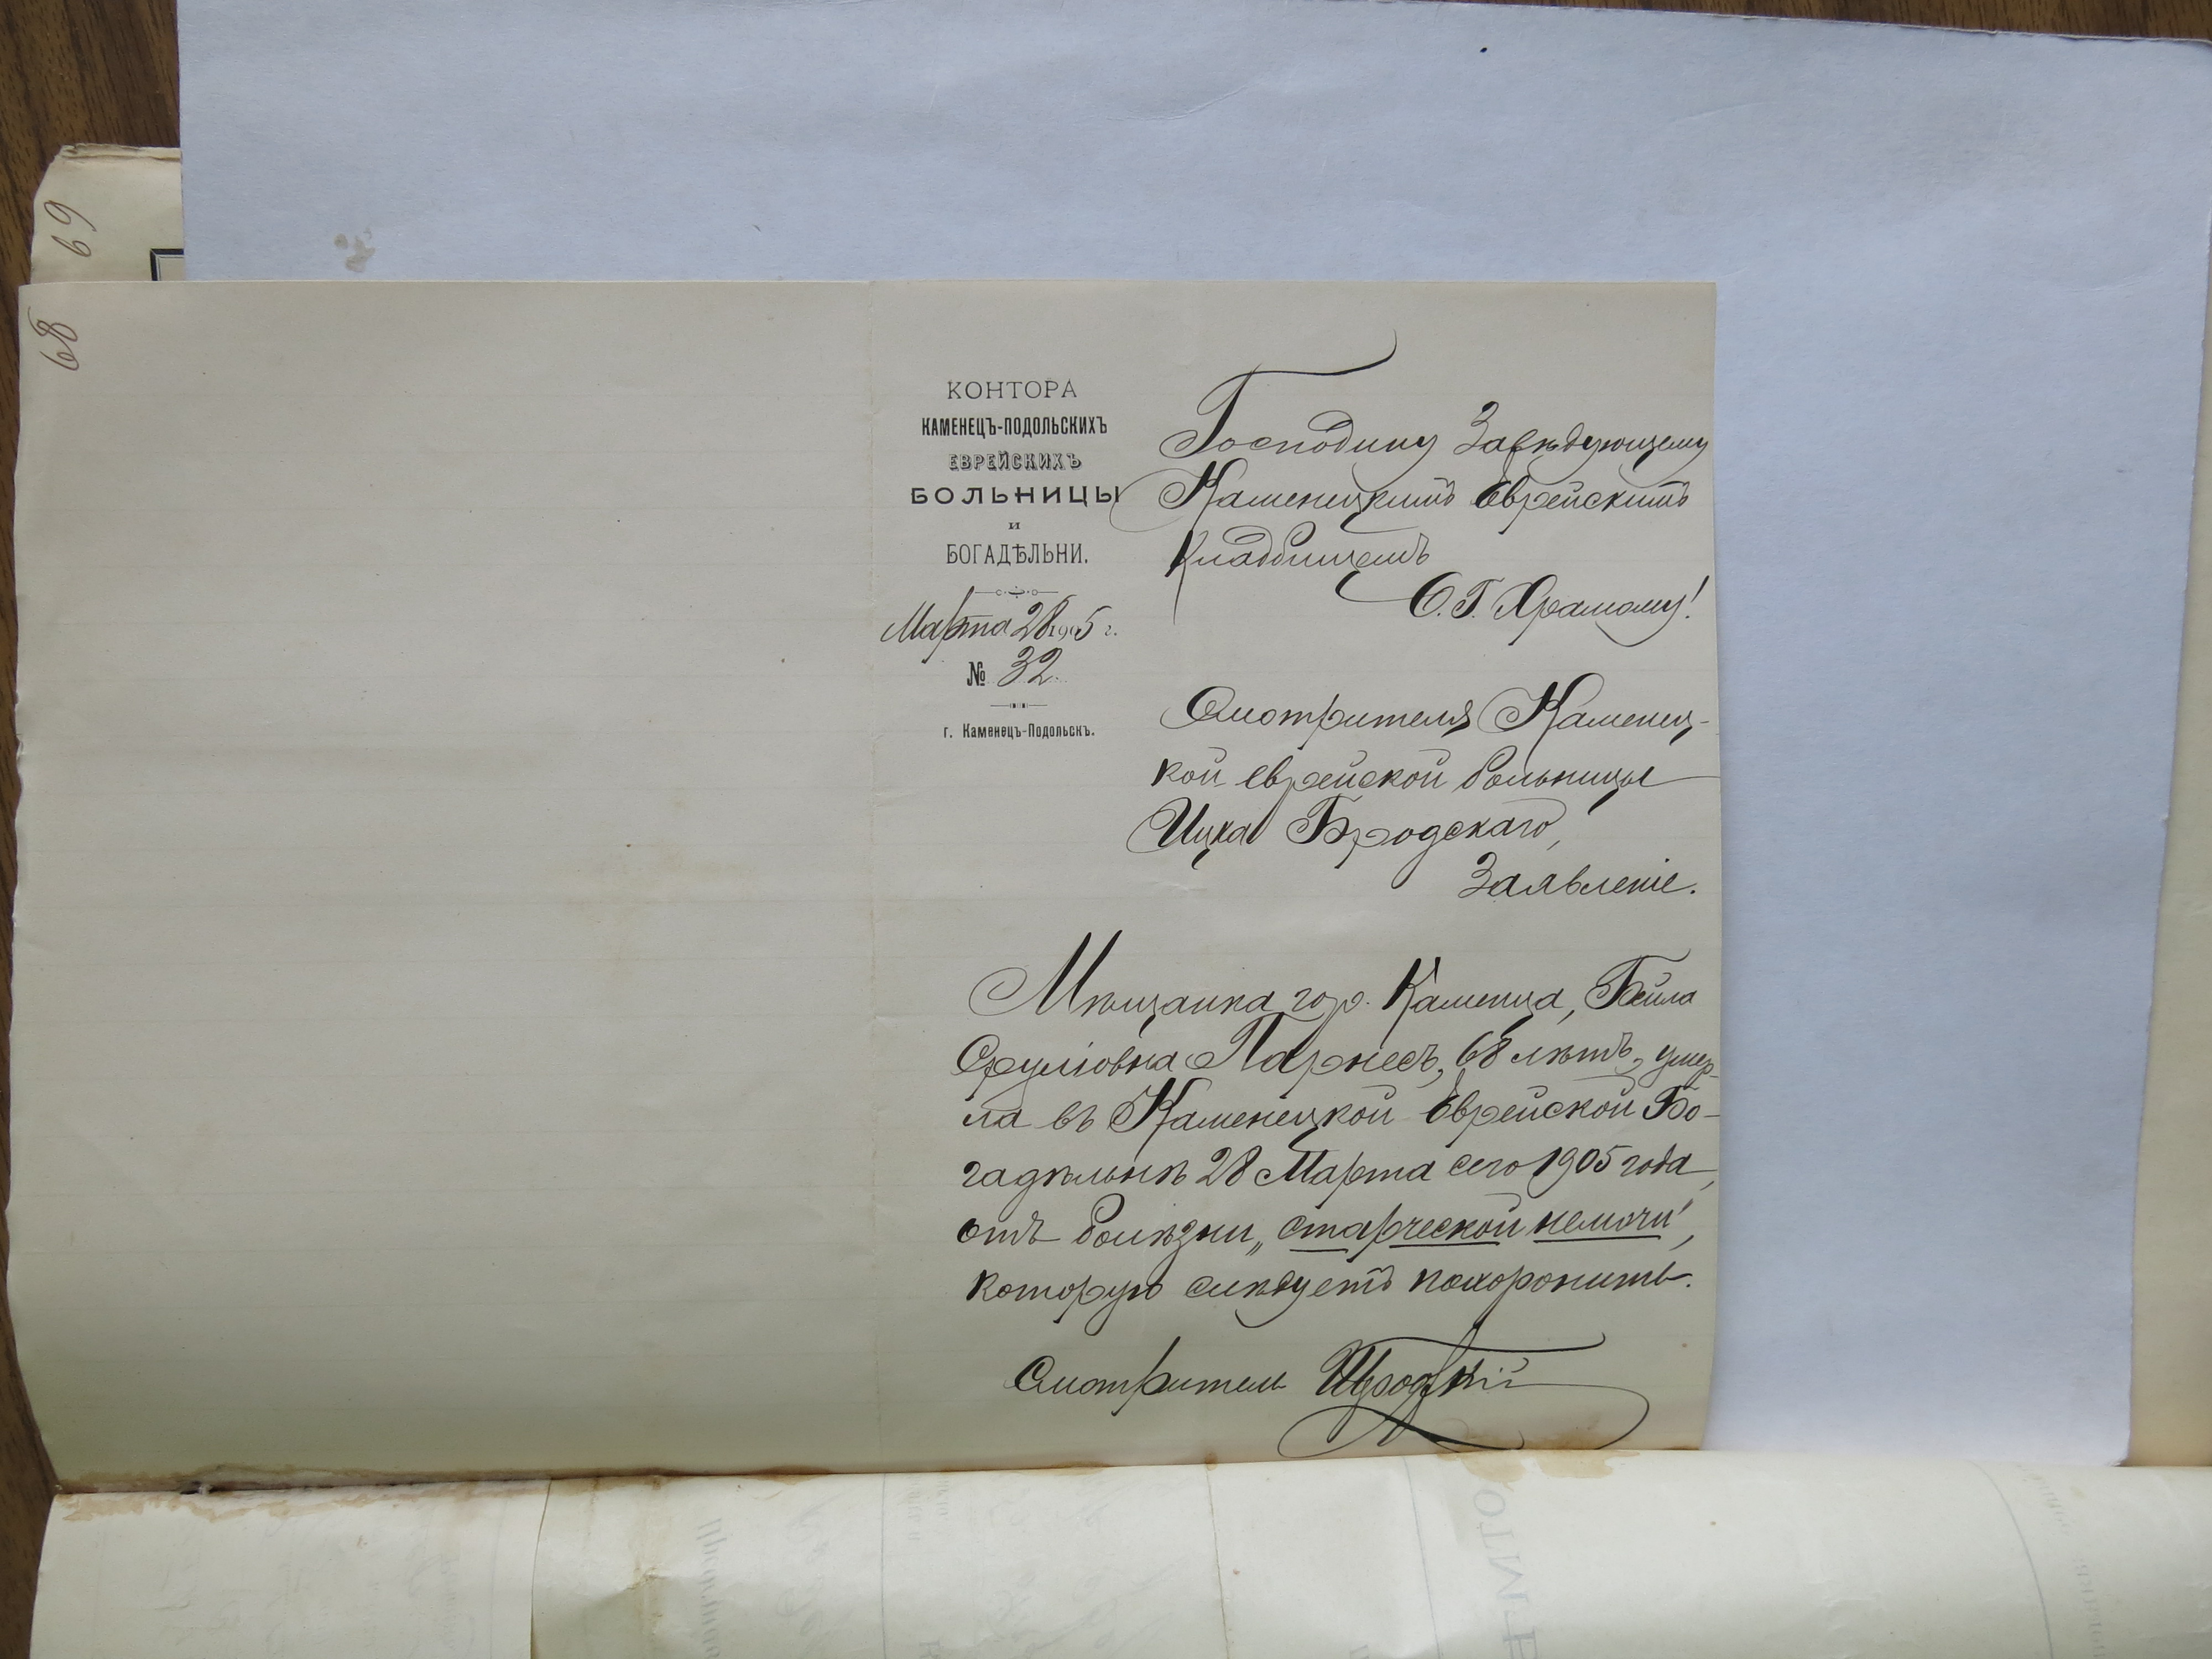 69
68
КОНТОРА
КАМЕНЕЦЪ-ПОДОЛЬСКИХЪ
ЕВРЕЙСКИХЪ
БОЛЬНИЦЫ
И
БОГАДѢЛЬНИ.
Марта 28 1905 г.
№ 32.
г. Каменецъ-Подольскъ.
Господину Завѣдующему
Каменецкимъ Еврейскимъ
Кладбищемъ
С. Г. Храмому!
Смотрителя Каменец-
кой еврейской больницы
Ицка Бродскаго,
Заявленіе.
Мѣщанка гор. Каменца, Бейла
Сруліовна Парнесъ, 68 лѣтъ, умер-
ла въ Каменецкой Еврейской Бо-
гадѣльнѣ 28 Марта сего 1905 года,
отъ болѣзни „старческой немочи",
которую слѣдуетъ похоронить.
Смотритель Бродскій